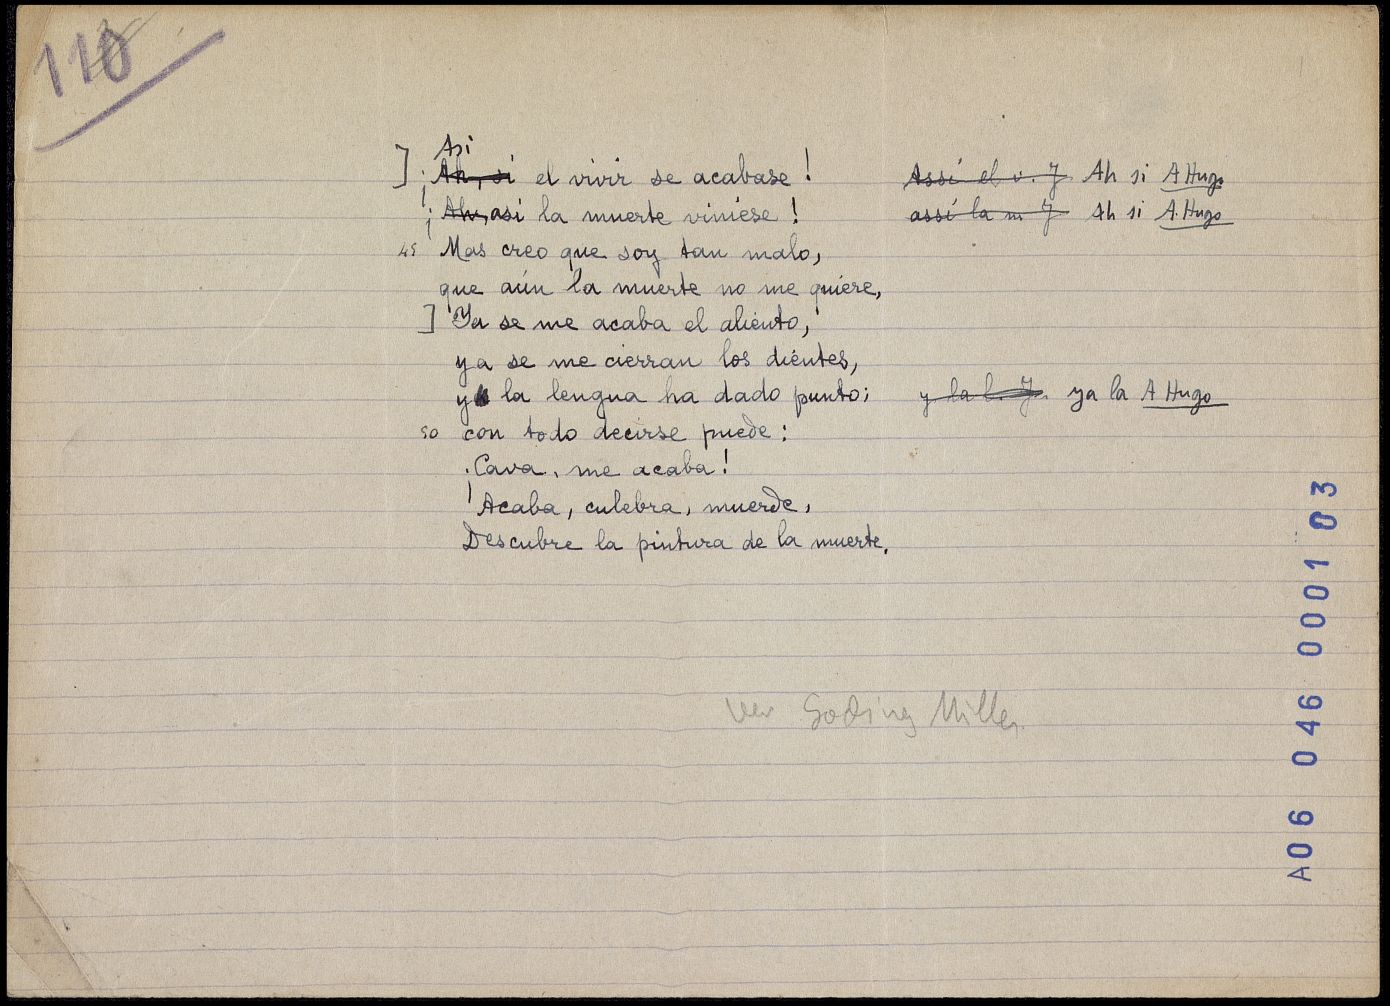 118
Asi
] ¡Ah, si el vivir se acabase! Assí el v. J Ah si A Hugo
¡Ah, asi la muerte viniese! assí la m J Ah si A. Hugo
45 Mas creo que soy tan malo,
que aún la muerte no me quiere,
] Ya se me acaba el aliento,
ya se me cierran los dientes,
y la lengua ha dado punto; y la l. J. ya la A Hugo
50 con todo decirse puede:
¡Cava, me acaba!
¡Acaba, culebra, muerde,
Descubre la pintura de la muerte.
Ver Miller
A06 046 0001 03